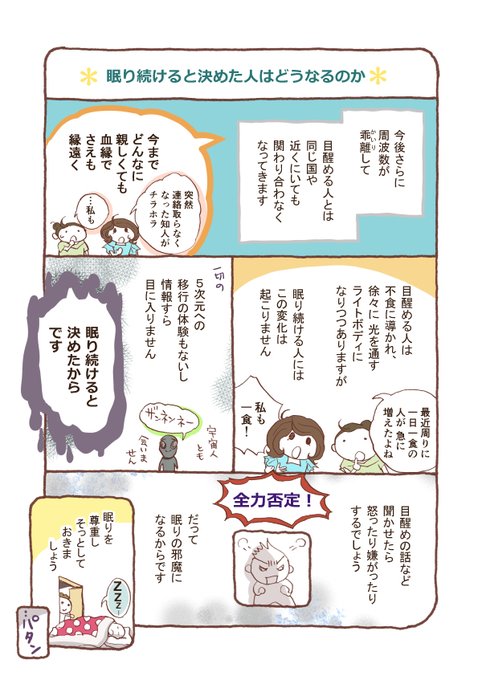 眠り続けると決めた人はどうなるのか
今後さらに
周波数が
かいり
乖離して
目醒める人とは
同じ国や
近くにいても
関わり合わなく
なってきます
今まで
どんなに
親しくても
血縁で
さえも
縁遠く
突然
連絡取らなく
なった知人が
チラホラ
…私も
目醒める人は
不食に導かれ、
徐々に 光を通す
ライトボディに
なりつつありますが
眠り続ける人には
この変化は
起こりません
最近周りに
一日一食の
人が急に
増えたよね
私も
一食！
一切の
5次元への
移行の体験もないし
情報すら
目に入りません
眠り続けると
決めたから
です
ザンネンネー
宇宙人
とも
会いま
せん
目醒めの話など
聞かせたら
怒ったり嫌がったり
するでしょう
全力否定！
だって
眠りの邪魔に
なるからです
眠りを
尊重し
そっとして
おきま
しょう
ZZZ…
…パタン